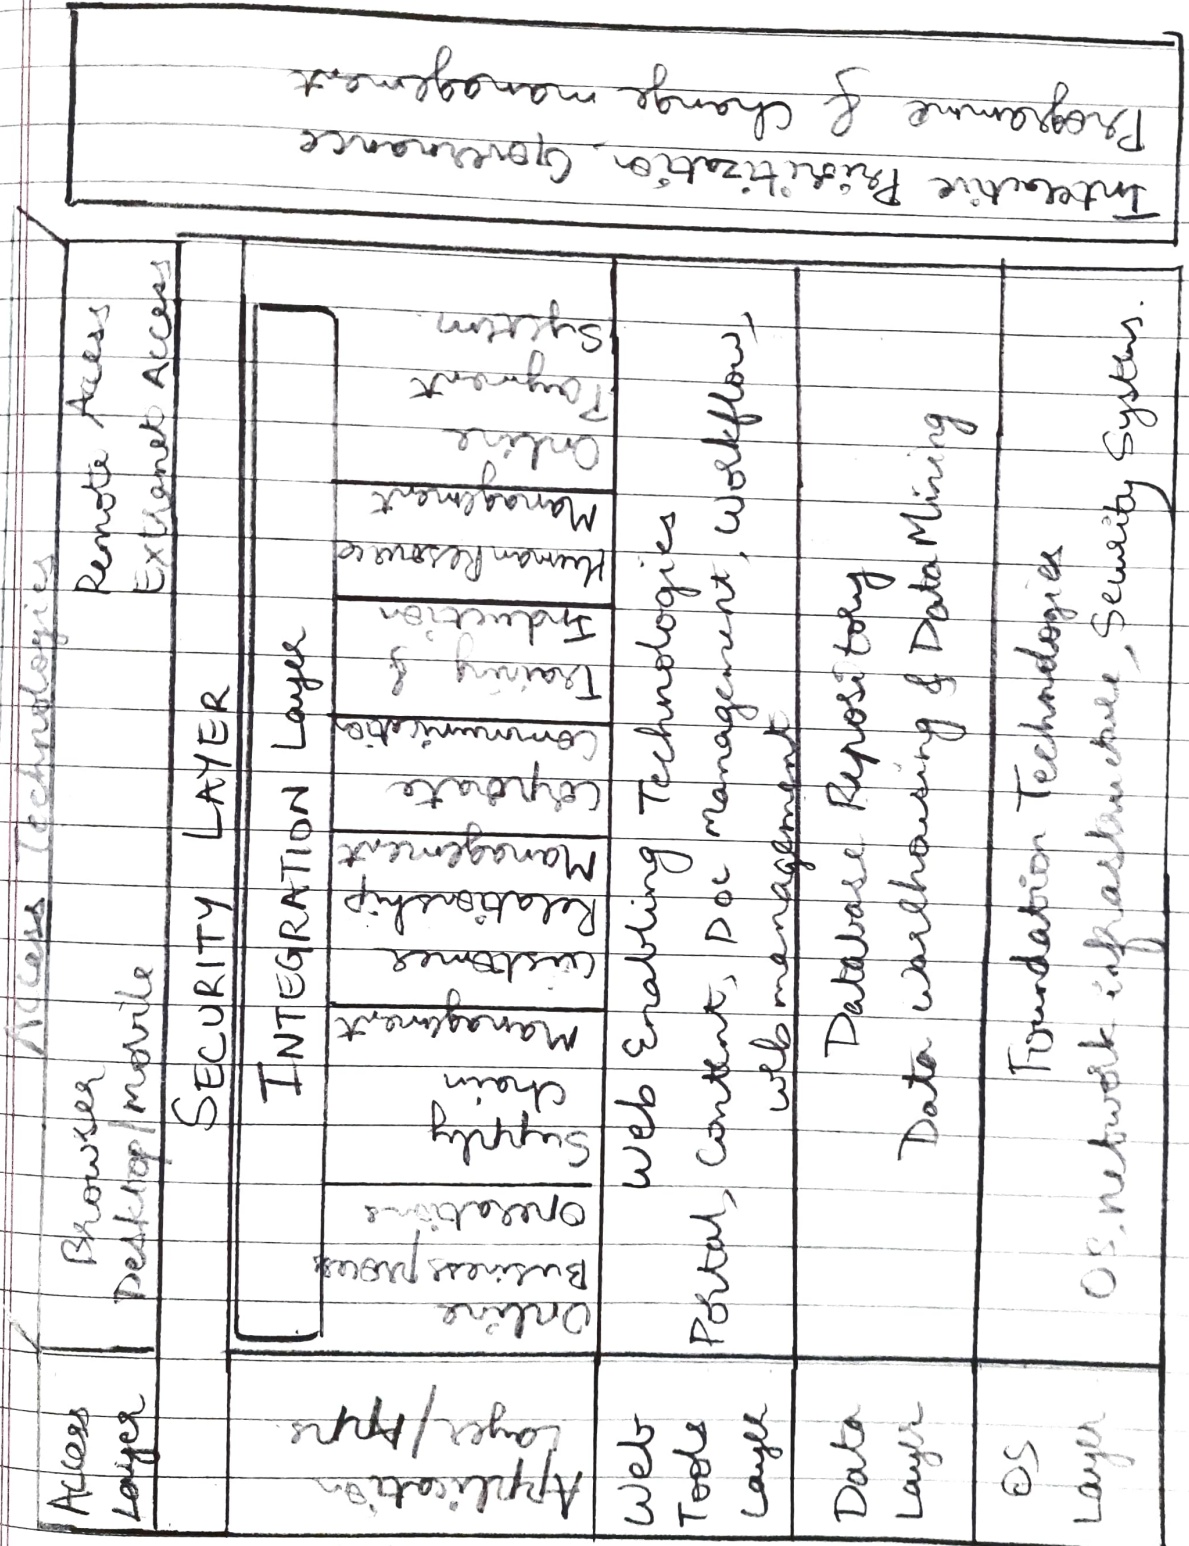 Access Technologies
Access
Layer
Browser
Desktop/Mobile
Remote Access
Extranet Access
SECURITY LAYER
INTEGRATION Layer
Application
Layer/Apps
Online
Business process
Operations
Supply
Chain
Management
Customer
Relationship
Management
Corporate
Communication
Training &
Induction
Human Resource
Management
Online
Payment
System
Web
Tools
Layer
Web Enabling Technologies
Portal, Content, Doc Management, Workflow,
web management
Data
Layer
Database Repository
Data warehousing & Data Mining
OS
Layer
Foundation Technologies
OS, network infrastructure, Security Systems.
Interactive Prioritization, Governance
Programme & Change management